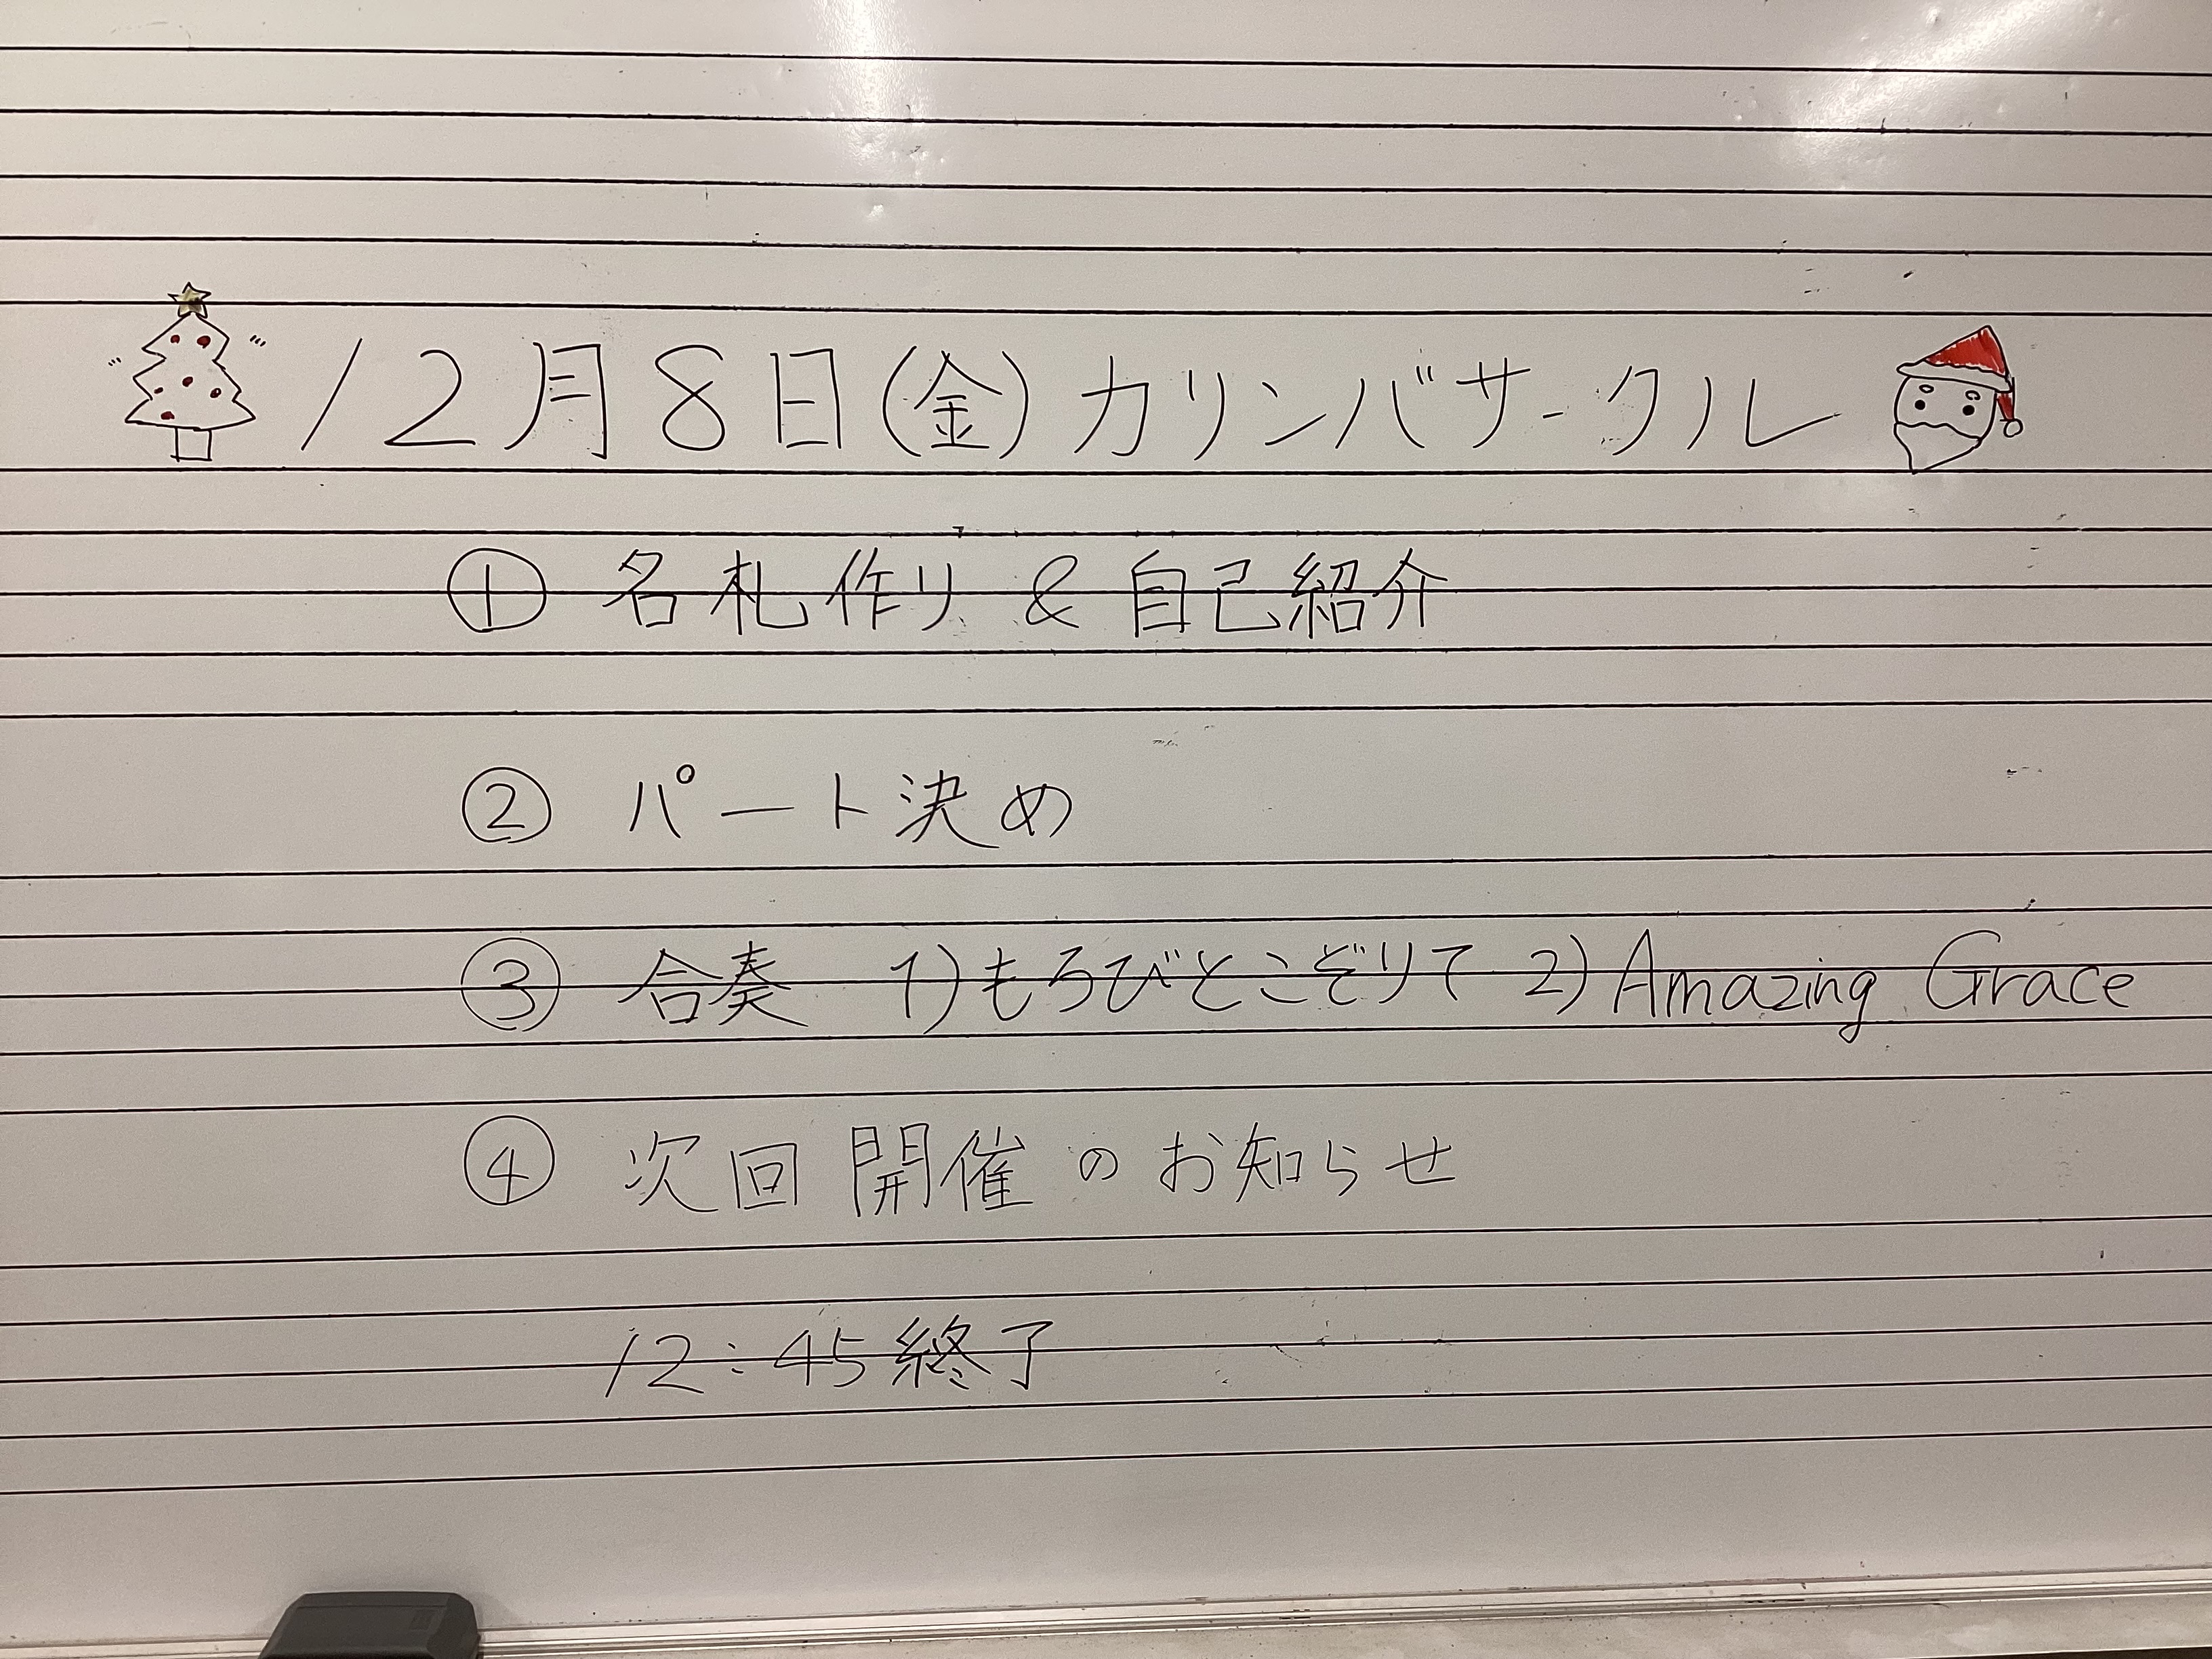 12月8日(金)カリンバサークル
① 名札作り & 自己紹介
② パート決め
③ 合奏 1)もろびとこぞりて 2)Amazing Grace
④ 次回開催のお知らせ
12:45終了